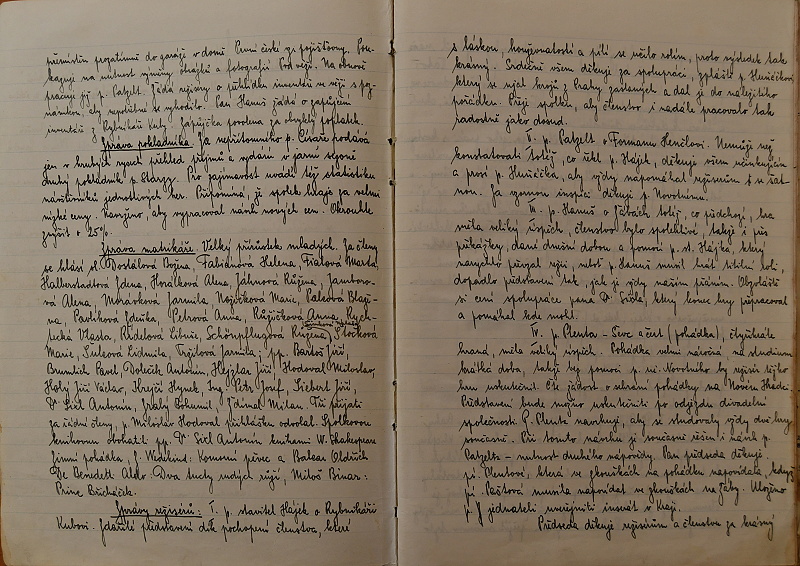 přemístěn prozatímně do garáže v domě První české vz. pojišťovny. Pou-
kazuje na nutnost výměny obrázků a fotografií Pod věží. Na obnově
pracuje již p. Patzelt. Žádá revisory o přehlídku inventáře ve věži s poz-
námkou, aby nepotřebné se vyhodilo. Pan Hanuš žádá o zapůjčení
inventáře z Rybnikáře Kuby. Zapůjčka povolena za obvyklý poplatek.
Zpráva pokladníka. Za nepřítomného p. Císaře podává
jen v hrubých rysech přehled příjmů a vydání v jarní sezoně
druhý pokladník p. Stárzy. Pro zajímavost uvádí též statistiku
návštěvníků jednotlivých her. Připomíná, že spolek hraje za velmi
nízké ceny. Navrženo, aby vypracoval návrh nových cen. Okrouhle
zvýšit o 25%.
Zpráva matrikáře. Velký přírůstek mladých. Za členy
se hlásí sl. Dostálová Božena, Fabiánová Helena, Fialová Marta,
Halberstadtová Zdena, Horálková Alena, Jahnová Růžena, Jamboro-
vá Alena, Moravková Jarmila, Nojičková Marie, Palcová Blaže-
na, Pavlíková Zdeňka, Petrová Anna, Růžičková Anna, Rych-
tecká Vlasta, Rüdelová Libuše, Schönpflugová Růžena, Stočková
Marie, Šulcová Lidmila, Trejtlová Jarmila; pp. Bartoš Jiří,
Brunclík Pavel, Doleček Antonín, Hejzlar Jiří, Hodoval Miloslav,
Holý Jiří Václav, Krejčí Hynek, Ing. Petr Josef, Siebert Jiří,
Dr Šůl Antonín, Zralý Bohumil, Ždímal Milan. Tito přijati
za řádné členy, p. Miloslav Hodoval přihlášku odvolal. Spolkovou
knihovnu obohatili pp. Dr Šůl Antonín knihami W. Shakespeare
Zimní pohádka, F. Wedekind: Komorní pěvec a Balcar Oldřich
De Benedetti Aldo: Dva tucty rudých růží, Miloš Binar:
Princ Brucháček.
Zprávy režisérů: I. p. stavitel Hájek o Rybnikáři
Kubovi. Zdařilé představení dík pochopení členstva, které
s láskou, houževnatostí a pílí se učilo rolím, proto výsledek tak
krásný. Srdečně všem děkuje za spolupráci, zvláště p. Hruščičkovi
který se ujal krojů z Prahy zaslaných a dal je do náležitého
pořádku. Přeji spolku, aby členstvo i nadále pracovalo tak
radostně jako dosud.
II. p. Patzelt o Formanu Henčlovi. Nemůže než
konstatovati totéž, co řekl p. Hájek, děkuje všem účinkujícím
a prosí p. Hruščičku, aby vždy napomáhal režisérům i v šat-
nou. Za vzornou inspici děkuje p. Novotnému.
III. p. Hanuš o Žabách totéž, co předchozí, hra
měla veliký úspěch, členstvo bylo spolehlivé, takže i přes
překážky, dané dnešní dobou a pomocí p. st. Hájka, který
narychlo převzal režii, neboť p. Hanuš musil hrát titulní roli,
dopadlo představení tak, jak je vždy naším přáním. Obzvláště
si cení spolupráce pana Dr Šůla, který konec hry přepracoval
a pomáhal kde mohl.
IV. p. Plenta – Švec a čert (pohádka), čtyřikráte
hraná, měla veliký úspěch. Pohádka velmi náročná, na studium
krátká doba, takže bez pomoci p. uč. Novotného by režisér těžko
hru uskutečnil. Čte žádost o sehrání pohádky na Novém Hrádci.
Představení bude možno uskutečniti po odjezdu divadelní
společnosti. G. Plenta navrhuje, aby se studovaly vždy dvě hry
současně. Při tomto návrhu je současně řešen i návrh p.
Patzelta – nutnost druhého nápovědy. Pan předseda děkuje
pí. Plentové, která ve zkouškách na pohádku napovídala, když
pí. Paštová musila napovídat ve zkouškách na Žáby. Uloženo
p. jednateli uveřejniti inserát v Kraji.
Předseda děkuje režisérům a členstvu za krásný